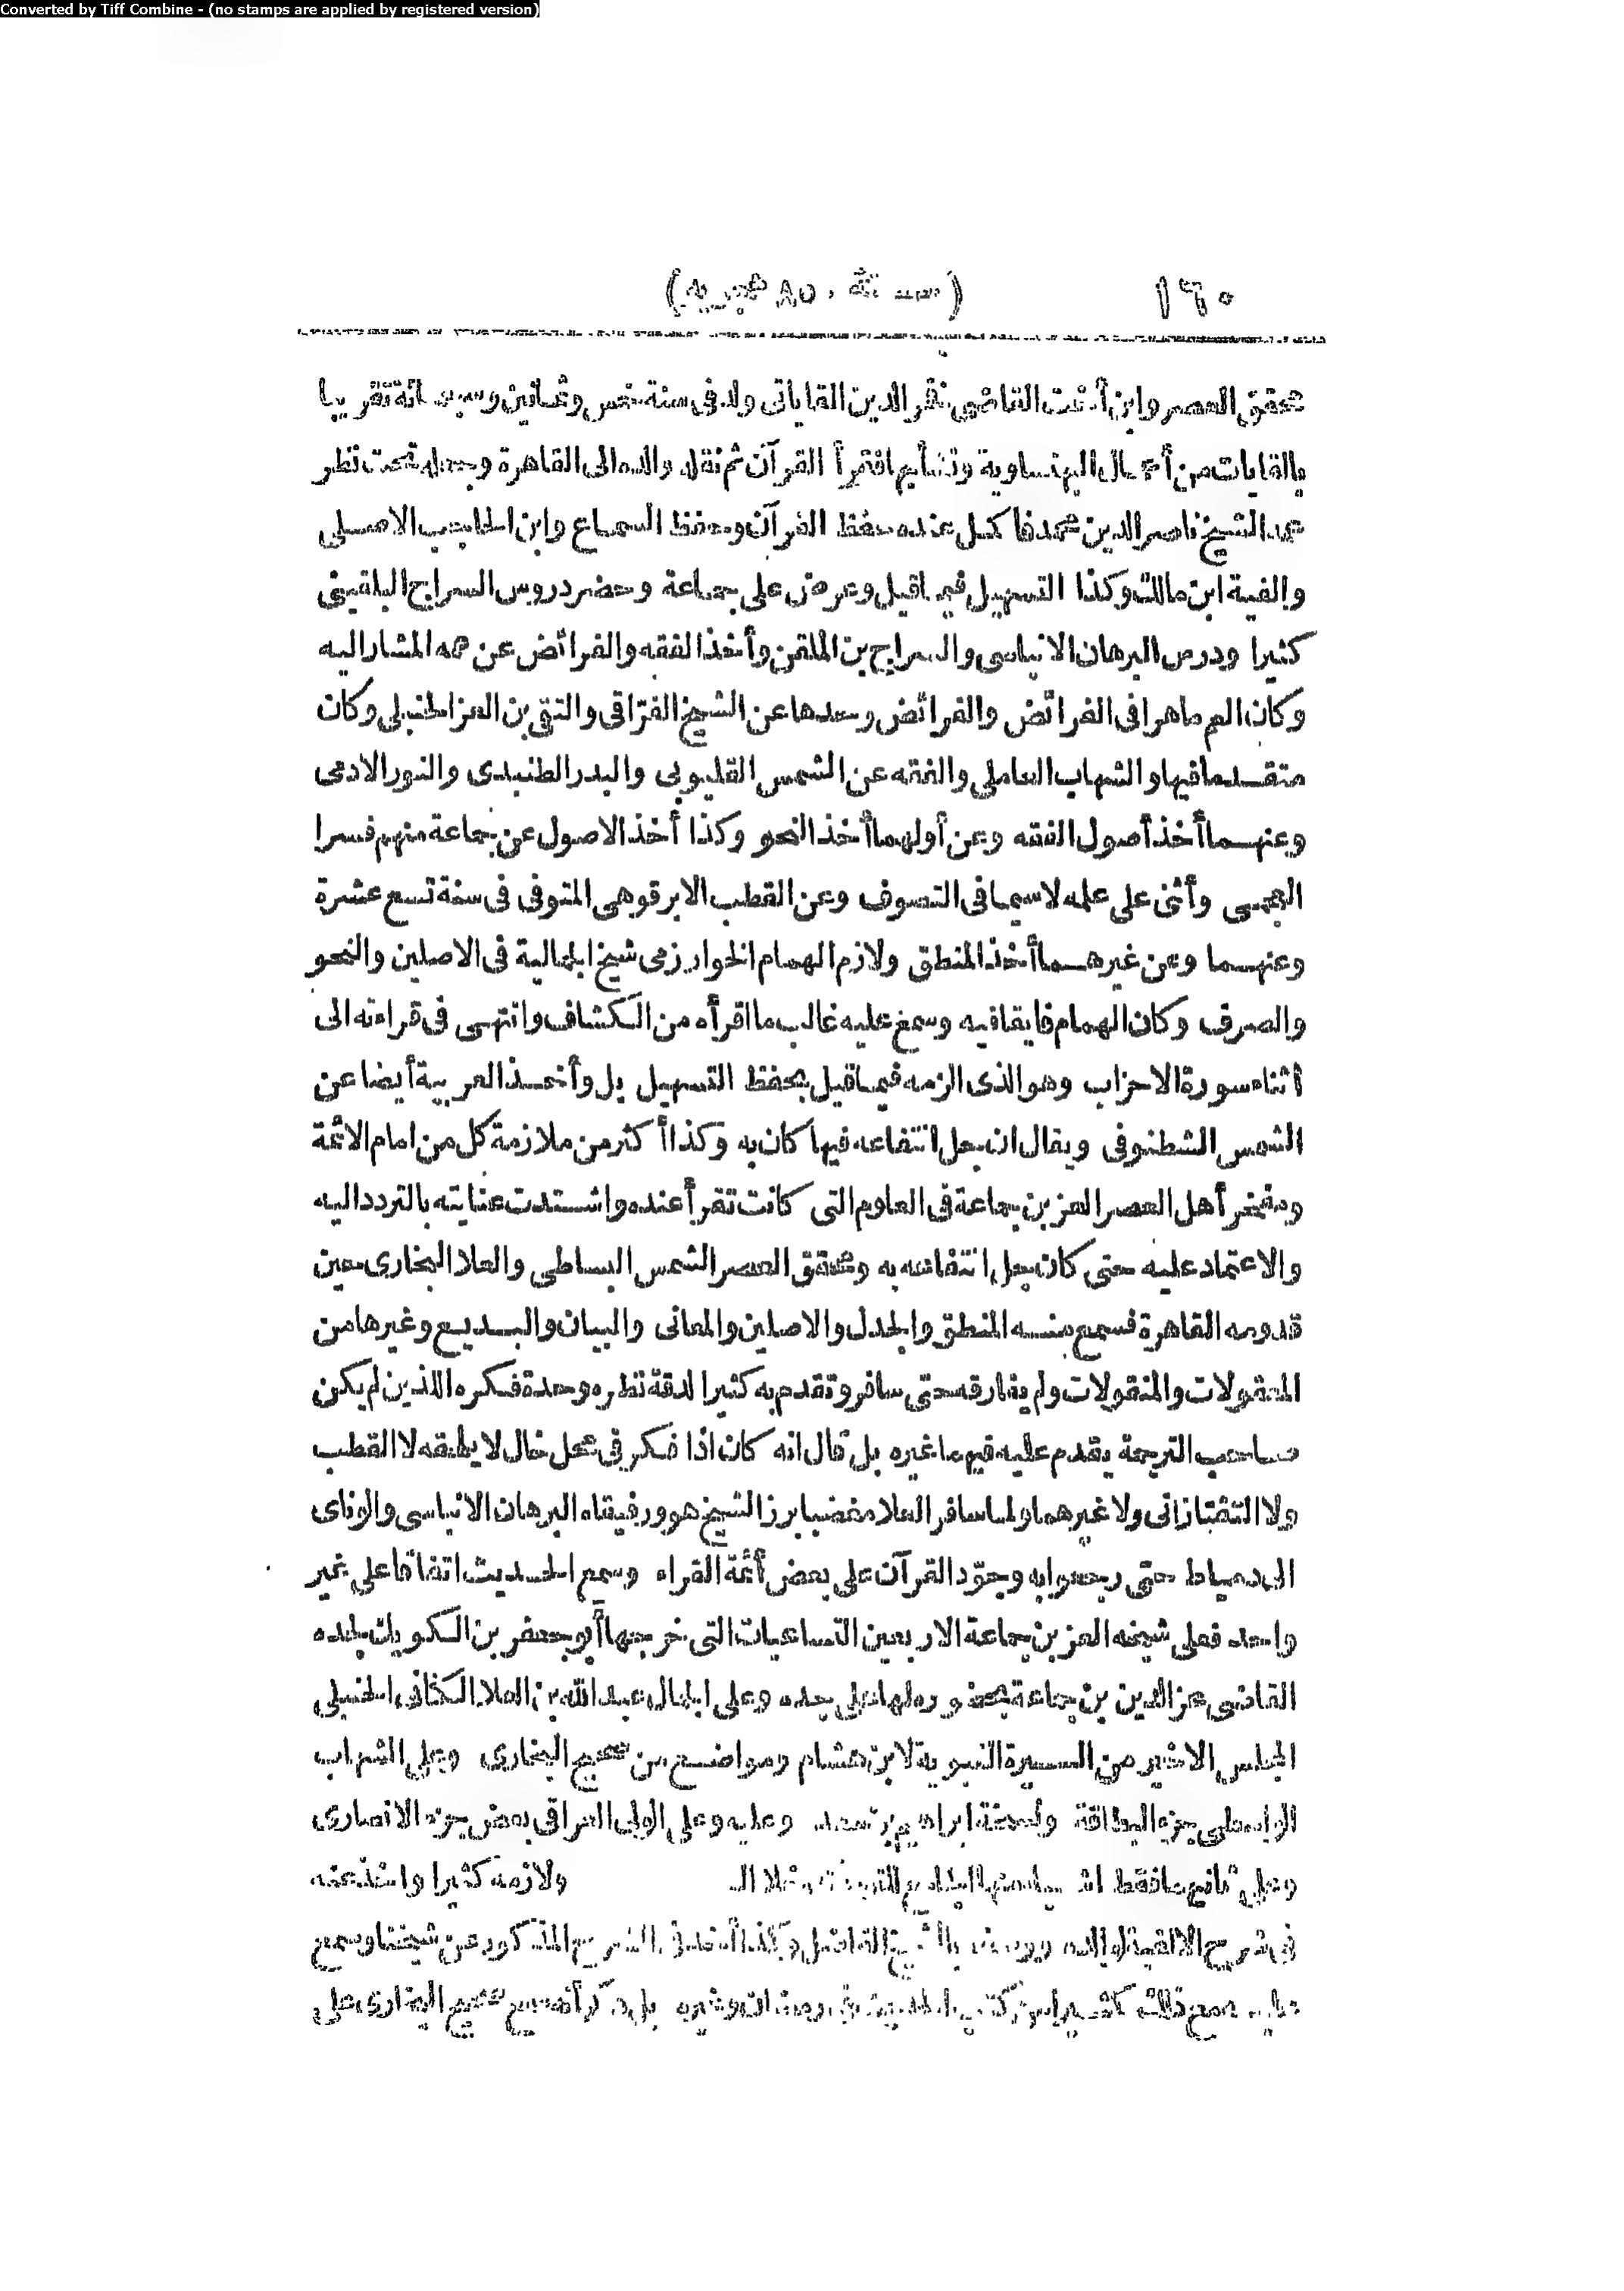 Converted by Tiff Combine - (no stamps are applied by registered version)
١٦٠ (سنة ٨٥٠ هجرية)
محقق العصر وابن أخت القاضى فخر الدين القاياتى ولد فى سنة خمس وثمانين وسبعمائة تقريبا
بالقايات من أعمال البهنساوية ونشأ بها فقرأ القرآن ثم نقله والده الى القاهرة وجعله تحت نظر
عمه الشيخ ناصر الدين محمد فاكمل عنده حفظ القرآن وحفظ السماع وابن الحاجب الاصلى
والفية ابن مالك وكذا التسهيل فيما قيل وعرض على جماعة وحضر دروس السراج البلقينى
كثيرا ودرس البرهان الانباسى والسراج بن الملقن وأخذ الفقه والفرائض عن عمه المشار اليه
وكان العم ماهرا فى الفرائض والفرائض وحدها عن الشيخ الغراقى والتقى بن العز الحنبلى وكان
متقدما فيها والشهاب العاملى والفقه عن الشمس القليوبى والبدر الطنبدى والنور الادمى
وعنهما أخذ أصول الفقه وعن أولهما أخذ النحو وكذا أخذ الاصول عن جماعة منهم قسرا
العجمى وأثنى على علمه لاسيما فى التصوف وعن القطب الابرقوهى المتوفى فى سنة تسع عشرة
وعنهما وعن غيرهما أخذ المنطق ولازم الهمام الخوارزمى شيخ الجمالية فى الاصلين والنحو
والصرف وكان الهمام فايقا فيه وسمع عليه غالب ما اقرأه من الكشاف وانتهى فى قراءته الى
أثناء سورة الاحزاب وهو الذى الزمه فيما قيل بحفظ التسهيل بل وأخذ العربية أيضا عن
الشمس الشطنوفى ويقال ان جل انتفاعه فيها كان به وكذا أكثر من ملازمة كل من امام الائمة
ومفخر أهل العصر العز بن جماعة فى العلوم التى كانت تقرأ عنده واشتدت عنايته بالتردد اليه
والاعتماد عليه حتى كان جل انتفاعه به ومحقق العصر الشمس البساطى والعلا البخارى حين
قدومه القاهرة فسمع منه المنطق والجدل والاصلين والمعانى والبيان والبديع وغيرها من
المعقولات والمنقولات ولم يفارقه حتى سافر وتقدم به كثيرا لدقة نظره وحدة فكره الذين لم يكن
صاحب الترجمة يقدم عليه فيهما غيره بل قال انه كان اذا فكر فى محل خال لا يلحقه لا القطب
ولا التفتازانى ولا غيرهما ولما سافر العلا مغضبا برز الشيخ هو ورفيقاه البرهان الانباسى والوناى
الى دمياط حتى رجعوا به وجوّد القرآن على بعض أئمة القراء وسمع الحديث اتفاقا على غير
واحد فعلى شيخه العز بن جماعة الاربعين التساعيات التى خرجها أبو جعفر بن الكويك لجده
القاضى عز الدين بن جماعة بحضوره لها على جده وعلى الجمال عبد الله بن العلاء الكنانى الحنبلى
المجلس الاخير من السيرة النبوية لابن هشام ومواضع من صحيح البخارى وعلى الشهاب
الواسطى جزء البطاقة ونسخة ابراهيم بن سعد وعليه وعلى الولى العراقى بعض جزء الانصارى
وعلى ثانيهما فقط ولازمه كثيرا واستذعنه
فى شرح الالفية لوالده الفاضل وكذا أخذ الشرح المذكور عن شيخنا وسمع
عليه مع ذلك كثيرا من كتب الحديث فى رمضان وغيره بل ذكر أنه سمع صحيح البخارى على